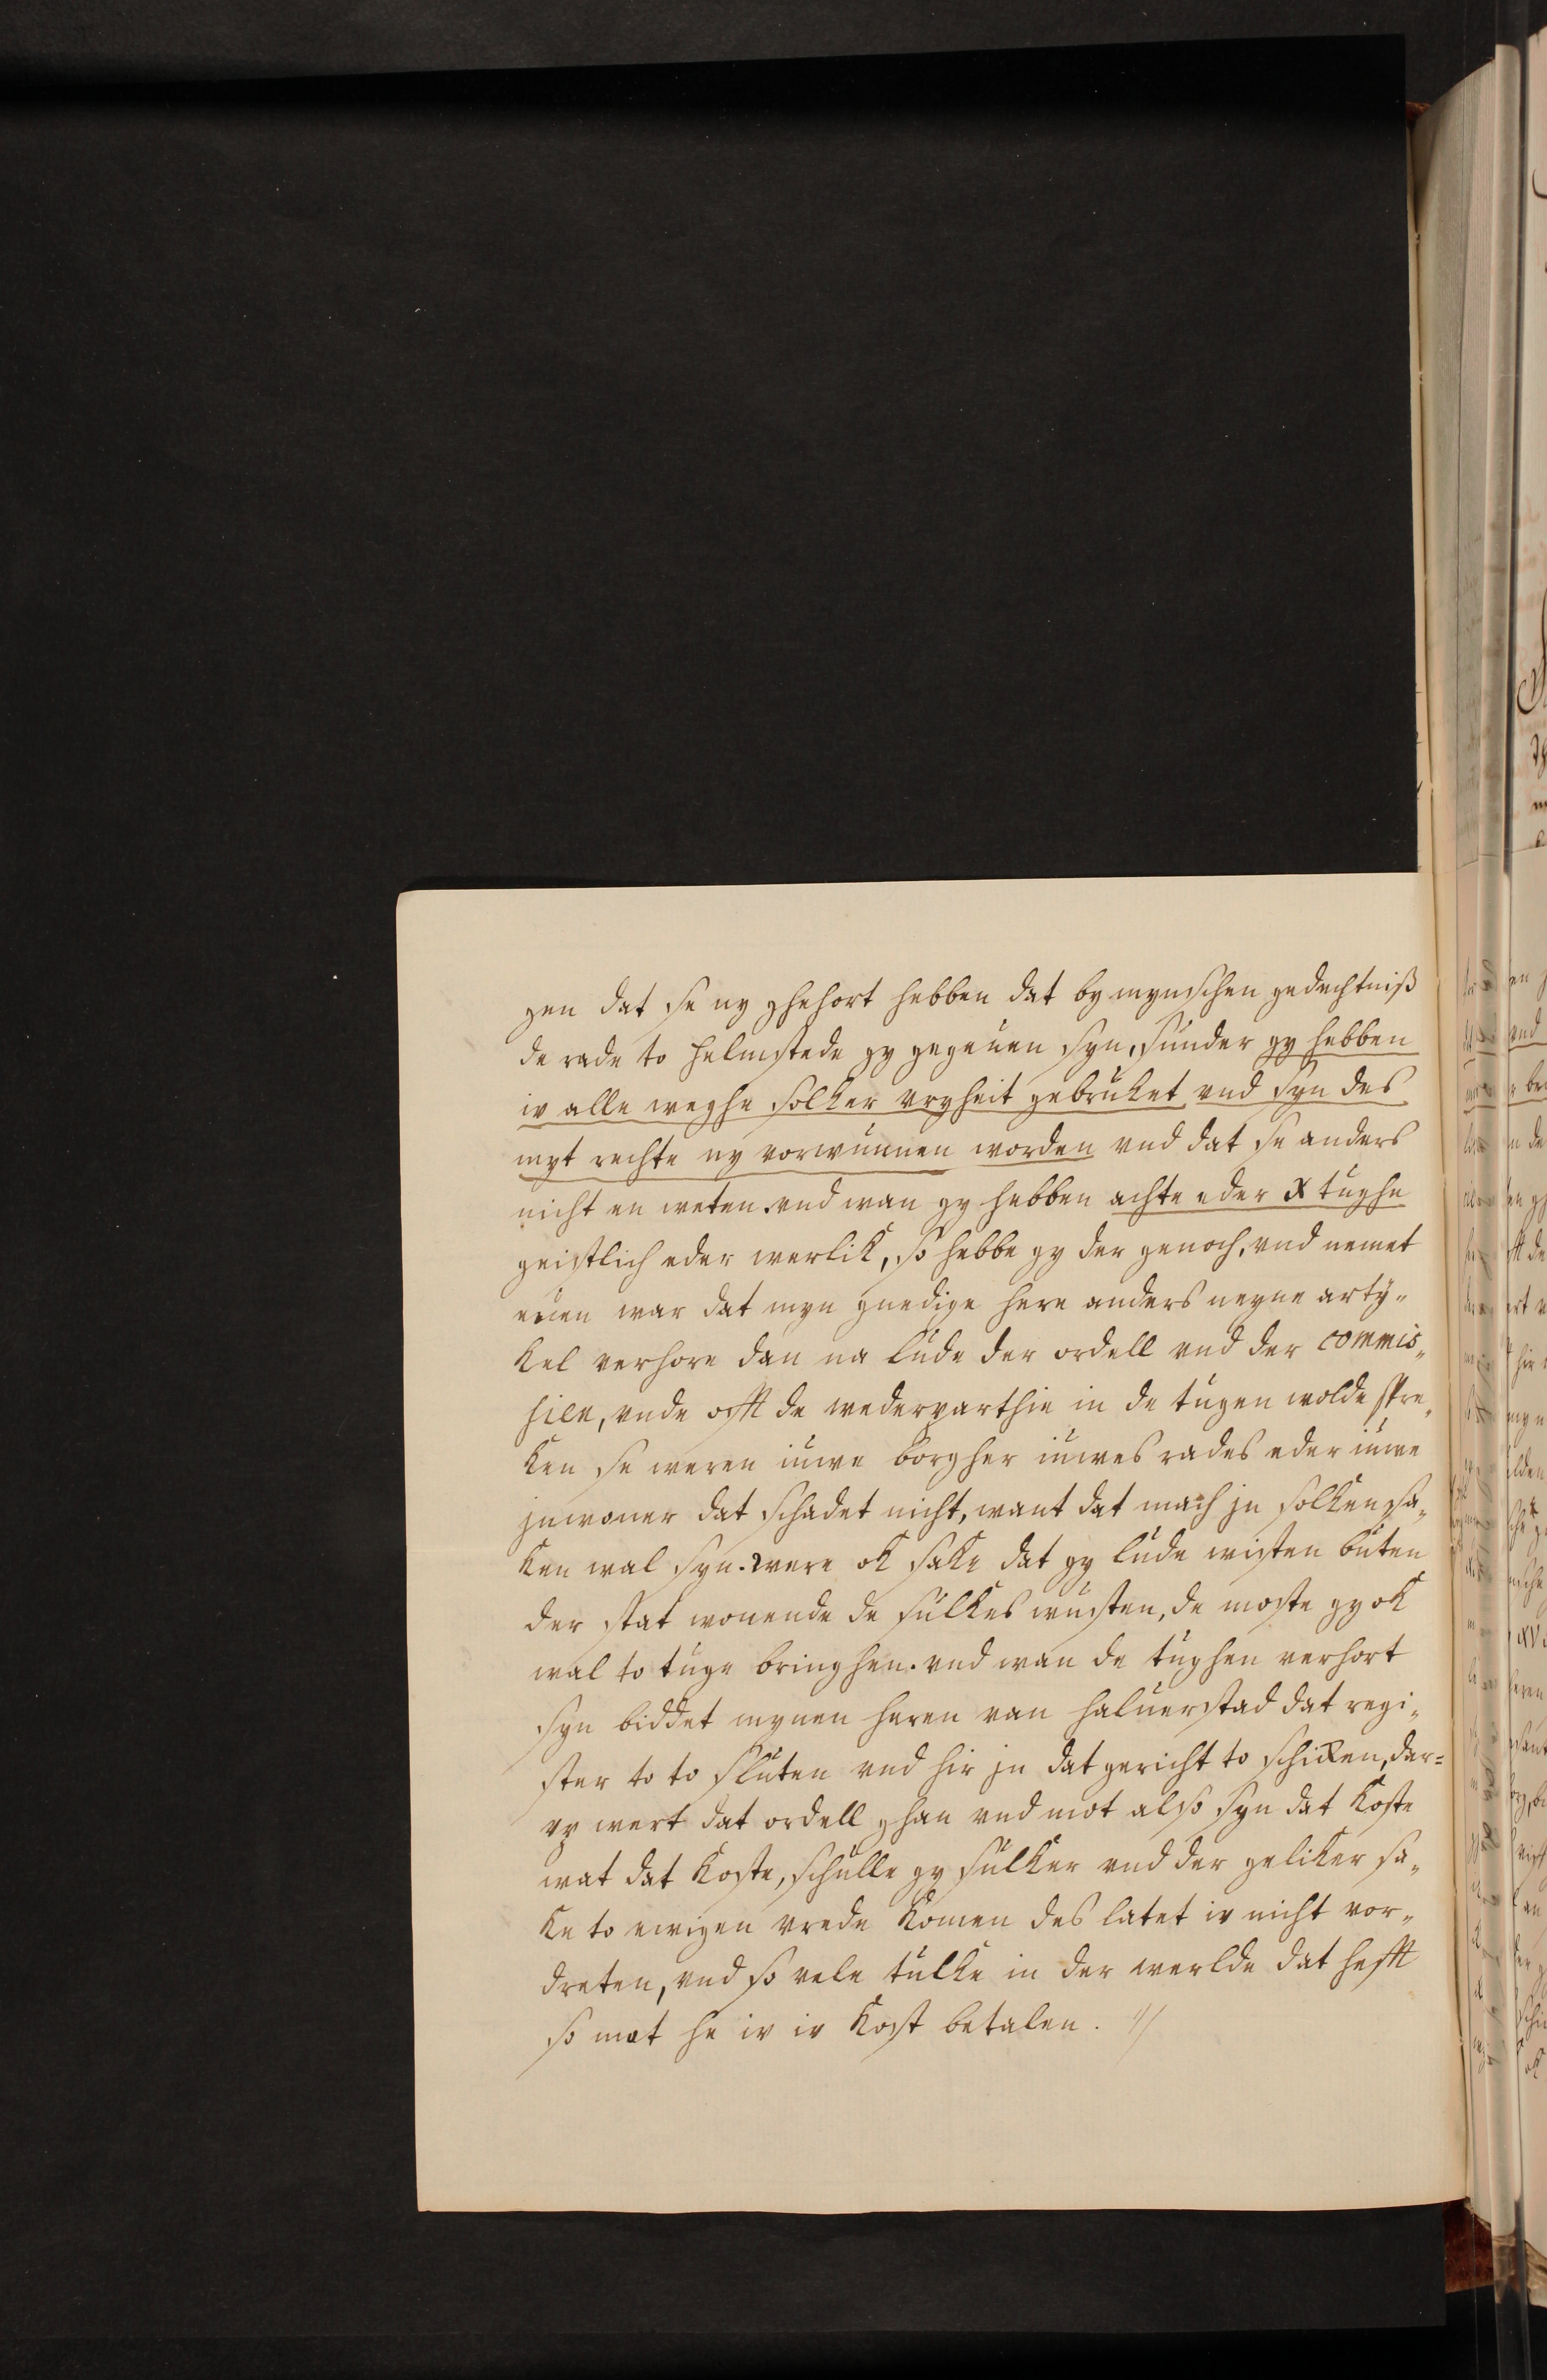 gen dat se ny ghehort hebben dat by mynschen gedechtniß
de rade to Helmstede gy gegeuen syn, sunder gy hebben
iv alle weghe solker vryheit gebruket vnd syn des
myt rechte ny vorwunnen worden vnd dat se anders
nicht en weten. vnd wan gy hebben achte eder X tughe
geistlich eder werlik, so hebbe gy der genoch, vnd nemet
euen war dat myn gnedige here anders neyne arty„
kel verhore dan na lude der ordell vnd der commis„
sien, vnde offt de wederparthie in de tugen wolde spre„
ken se weren iuwe borgher iuwes rades eder iuwe
jnwoner dat schadet nicht, want dat mach jn solken sa„
ken wal syn. were ok sake dat gy lude wisten buten
der stat wonende de sulkes wusten, de moste gy ok
wal to tuge bringhen. vnd wan de tughen verhort
syn biddet mynen heren van haluerstad dat regi„
ster to to sluten vnd hir jn dat gericht to schicken, dar=
vp wert dat ordell ghan vnd mot also syn dat koste
wat dat koste, schulle gy sulker vnd der geliker sa„
ke to ewigen vrede komen des latet iv nicht vor„
dreten, vnd so vele tulke in der werlde dat hefft
so mot he iv iv kost betalen.